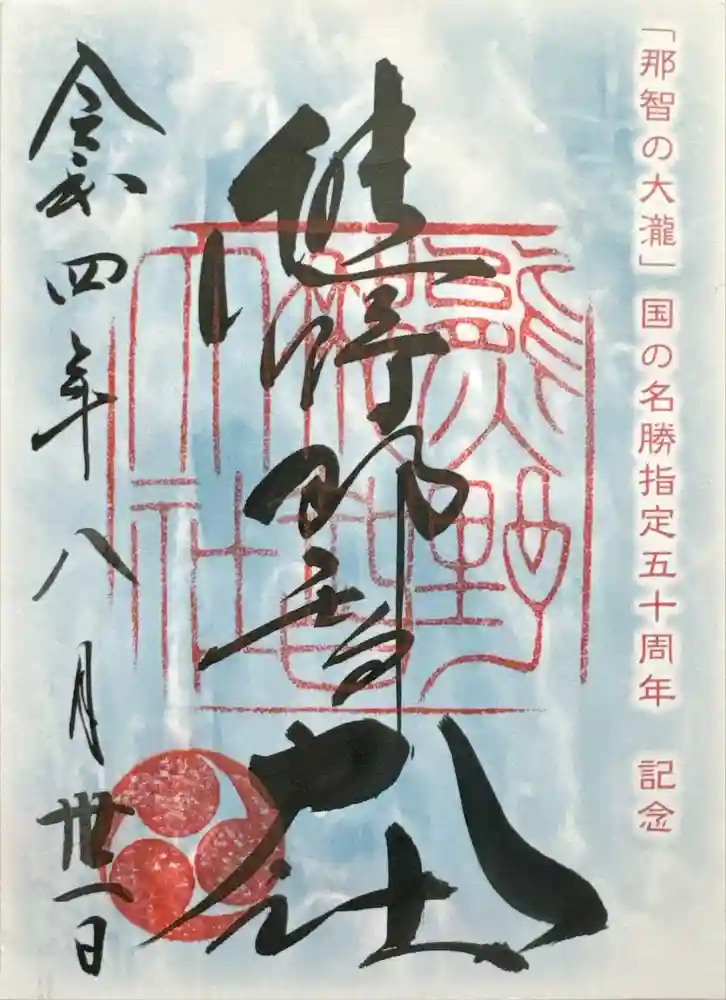 「那智の大瀧」国の名勝指定五十周年　記念
熊野那智大社
令和四年八月丗一日